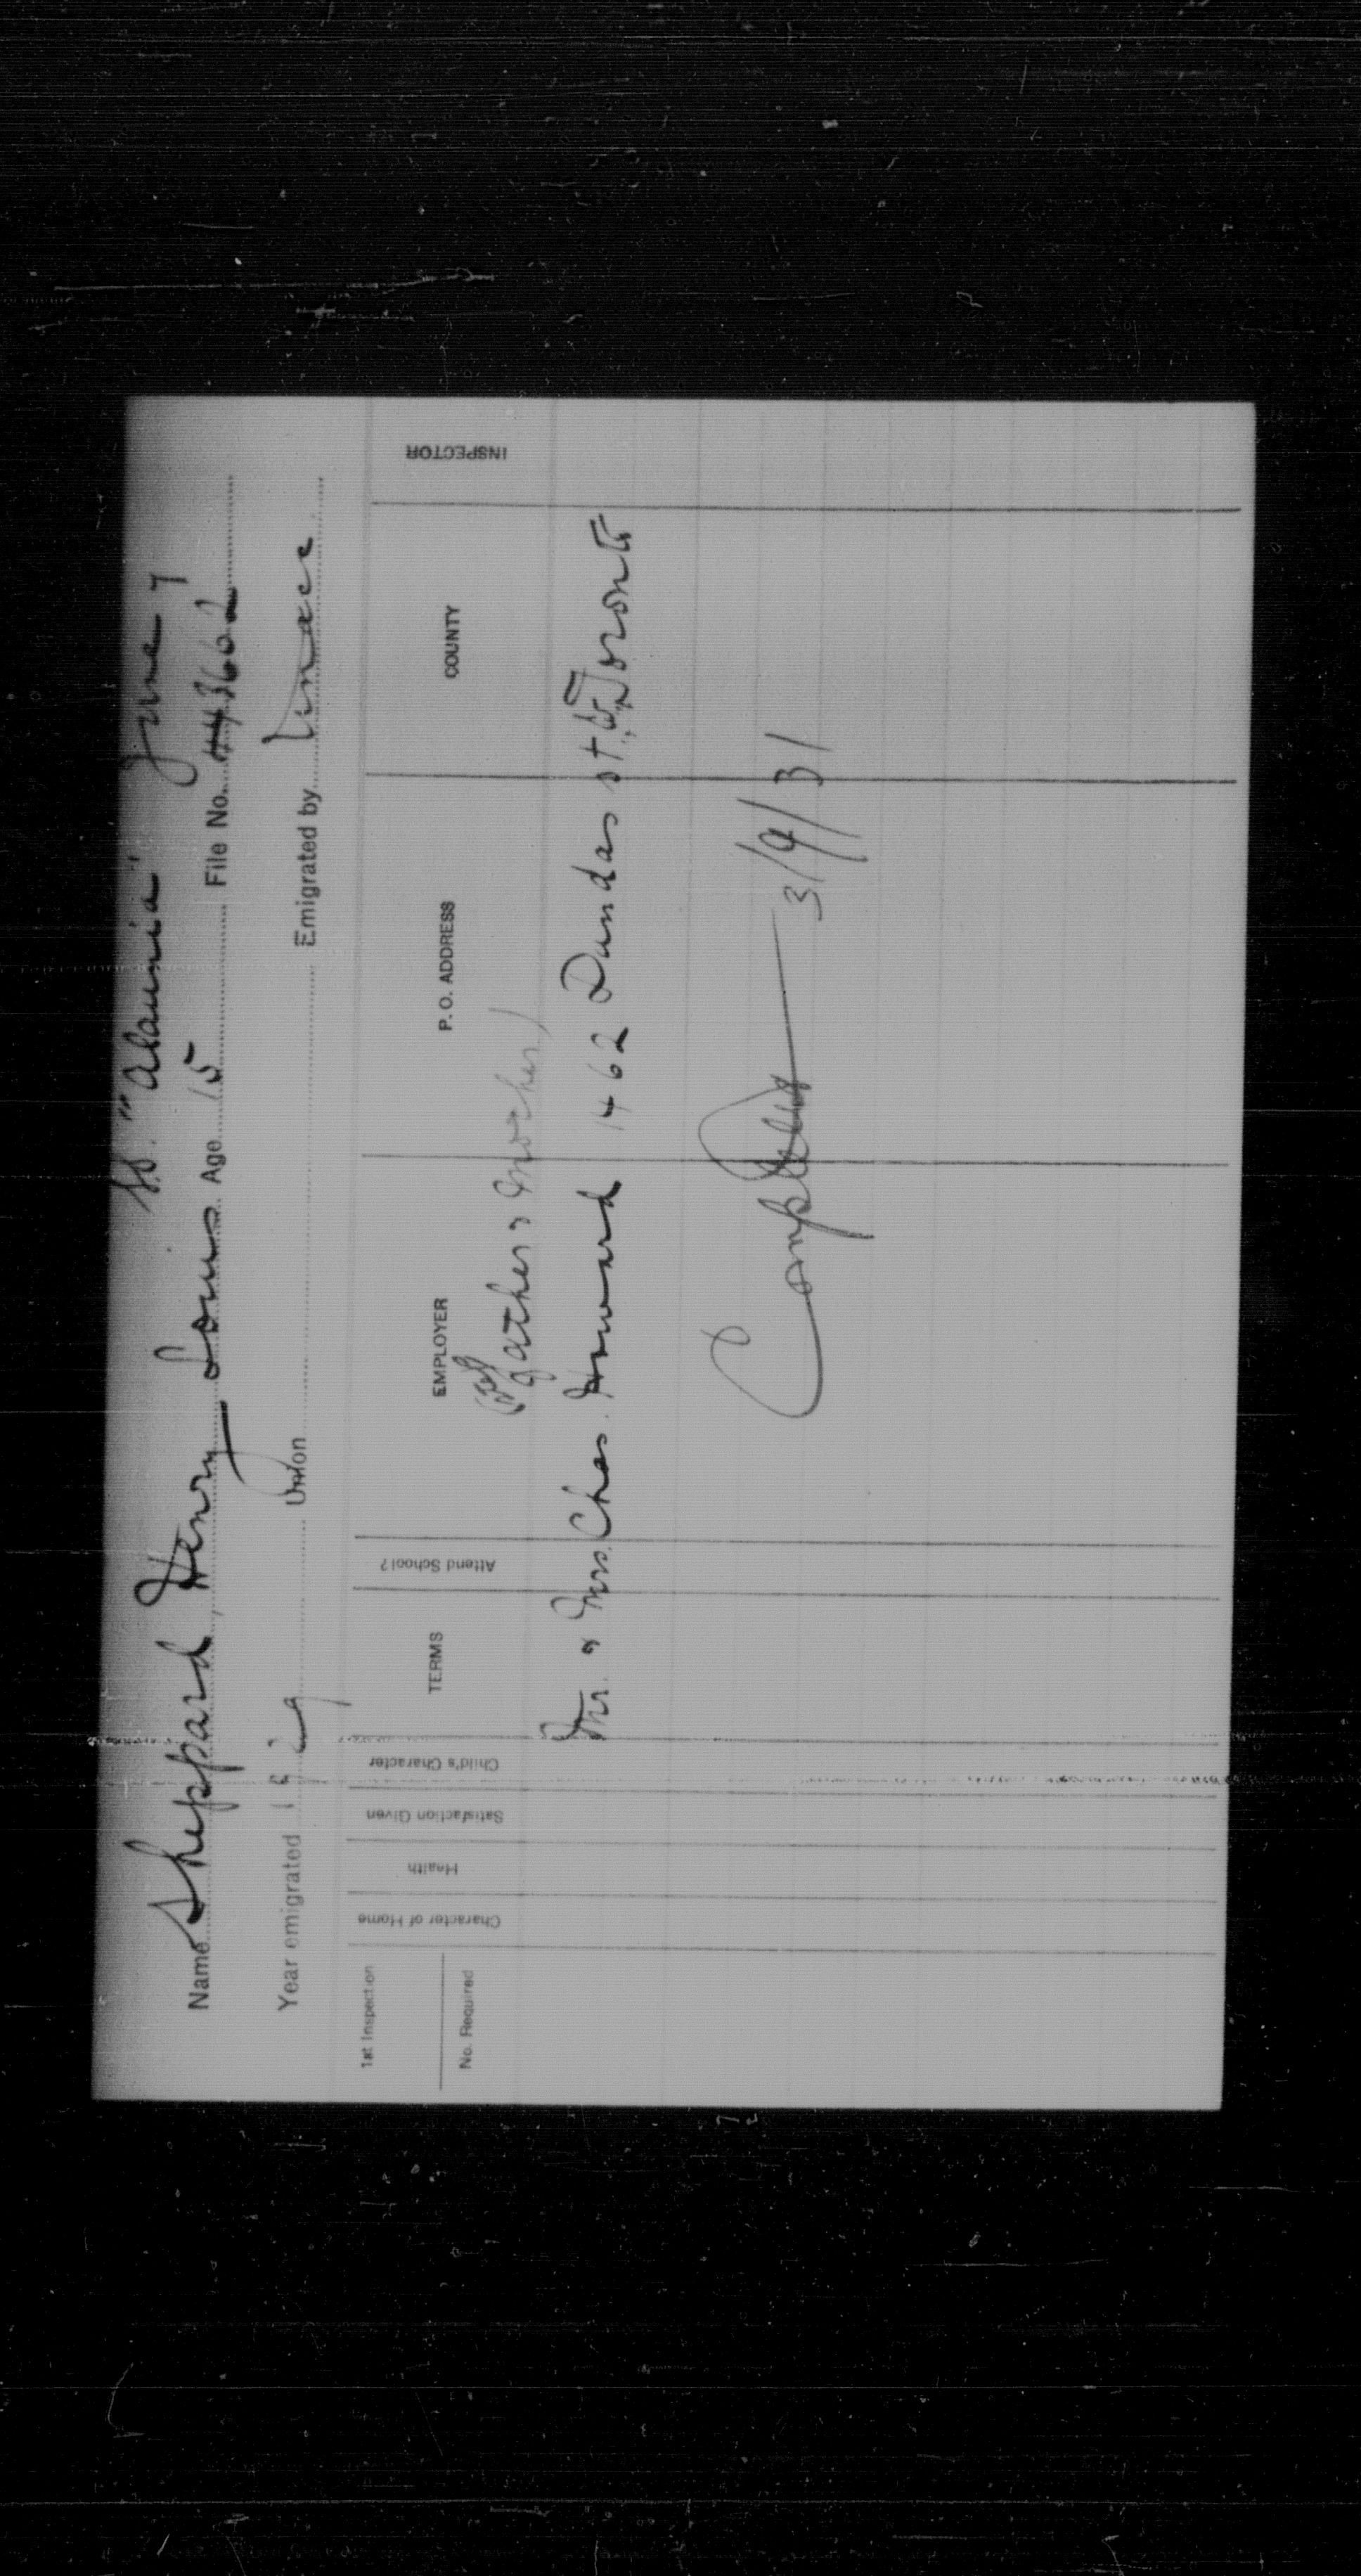 S.S. "Alaunia" June 7
Name Sheppard, Henry Louis Age 15 File No. 43662
Year emigrated 19 Union Emigrated by
1st Inspection
No. Required
Character of Home
Health
Satisfaction Given
Child's Character
TERMS
Attend School?
EMPLOYER
P. O. ADDRESS
COUNTY
INSPECTOR
Father & Mother)
Mr. & Mrs. Chas. Howard 1462 Dundas St. W., Toronto
Completed 3/9/31